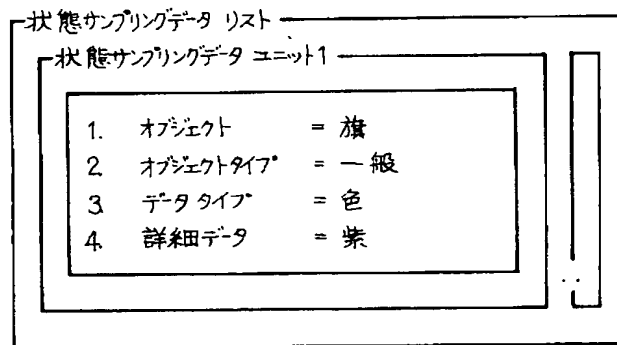 状態サンプリングデータ リスト
状態サンプリングデータ ユニット1
1. オブジェクト = 旗
2 オブジェクトタイプ = 一般
3 データタイプ = 色
4. 詳細データ = 紫